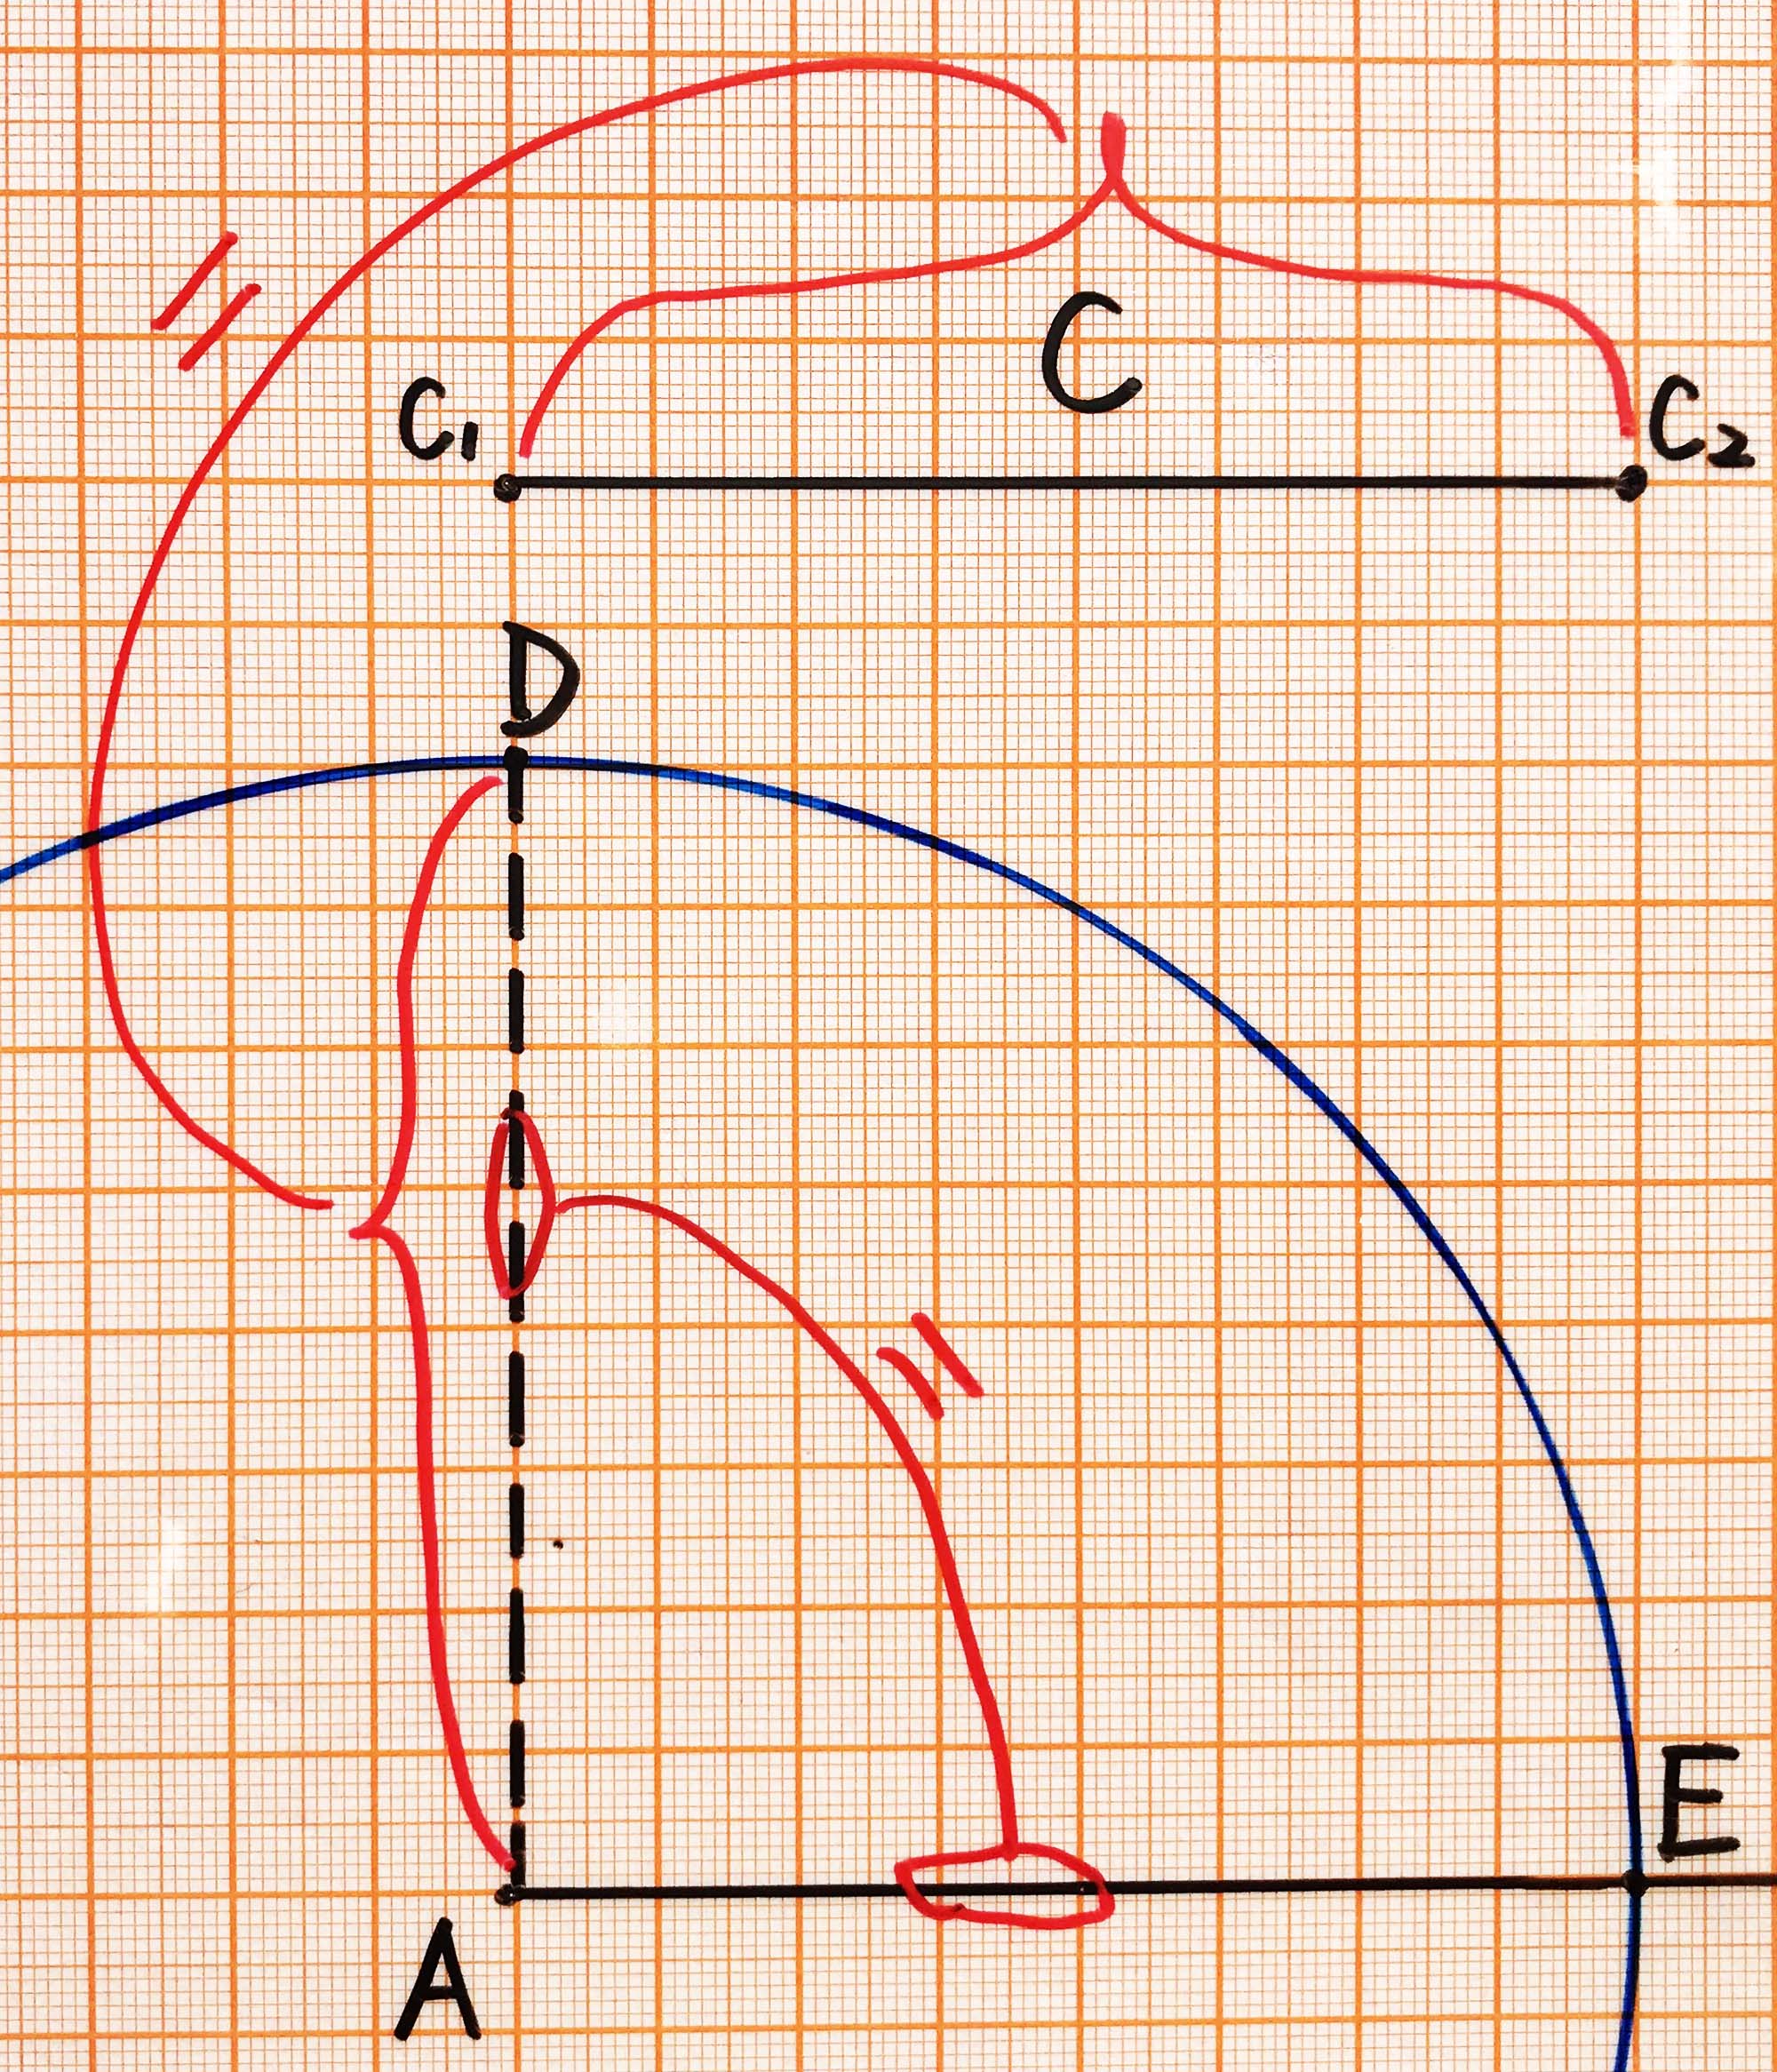 C
C₁
C₂
D
E
A